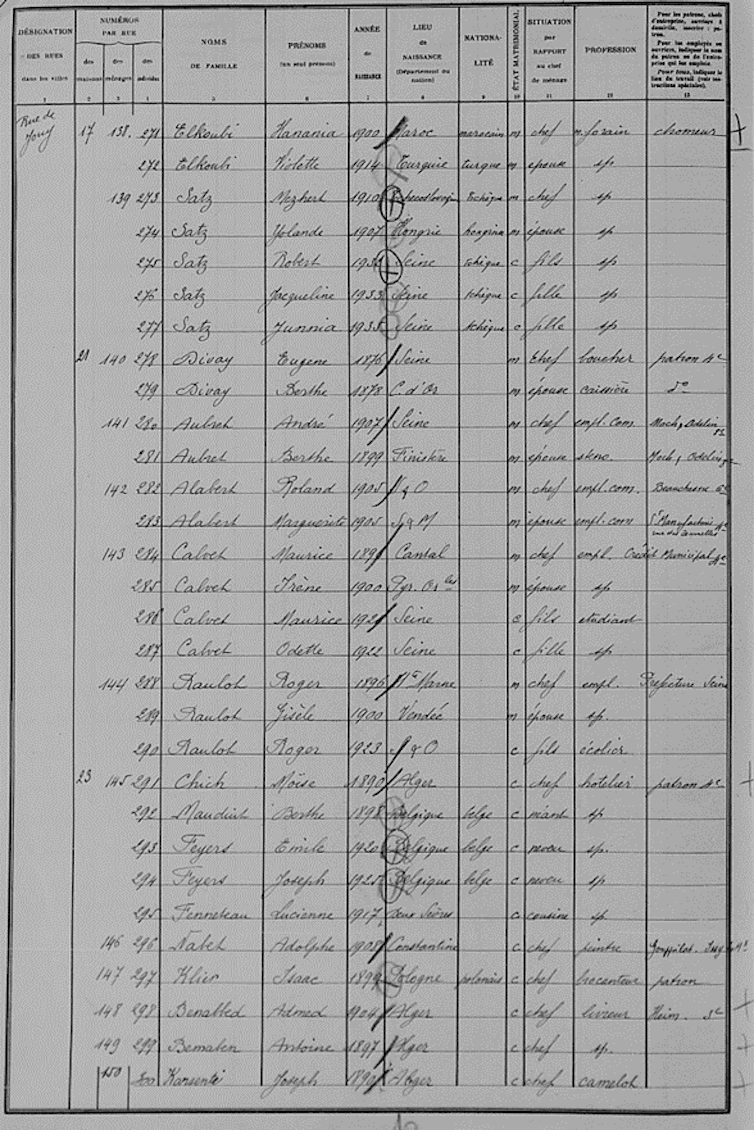 DÉSIGNATION DES RUES dans les villes 1
NUMÉROS PAR RUE
des maisons 2 des ménages 3 des individus 4
NOMS DE FAMILLE 5
PRÉNOMS (un seul prénom) 6
ANNÉE de NAISSANCE 7
LIEU de NAISSANCE (Département ou nation) 8
NATIONALITÉ 9
ÉTAT MATRIMONIAL 10
SITUATION par RAPPORT au chef de ménage 11
PROFESSION 12
Pour les patrons, chefs d'entreprise, ouvriers à domicile, inscrire : patron. Pour les employés ou ouvriers, indiquer le nom du patron ou de l'entreprise qui les emploie. Pour tous, indiquer le lieu du travail (voir instructions spéciales). 13
Rue de Jouy 17 138. 271 Elkoubi Hanania 1900 Maroc marocain m chef m. forain chomeur
272 Elkoubi Violette 1914 Turquie turque m epouse sp
139 273 Satz 1910 Tchèque m chef sp
274 Satz Yolande 1907 Hongrie hongroise m épouse sp
275 Satz Robert Seine tchèque c fils sp
276 Satz Jacqueline 1933 Seine tchèque c fille sp
277 Satz 1935 Seine tchèque c fille sp
21 140 278 Divay Eugene 1876 Seine m Chef boucher patron 4e
279 Divay Berthe 1878 C. d'Or m épouse caissière do
141 280 Aubret André 1907 Seine m chef empl. com. Odelin
281 Aubret Berthe 1899 Finistère m épouse steno Odelin
142 282 Alabert Roland 1905 S & O m chef empl. com. Beauchesne
283 Alabert Marguerite 1905 S & M m épouse empl. com
143 284 Calvet Maurice Cantal m chef empl. Crédit Municipal 4e
285 Calvet Irène 1900 Pyr. Or les m épouse sp
286 Calvet Maurice Seine c fils etudiant
287 Calvet Odette 1922 Seine c fille sp
144 288 Raulot Roger 1896 Hte Marne m chef empl. Prefecture Seine
289 Raulot Gisèle 1900 Vendée m épouse sp.
290 Raulot Roger 1923 S & O c fils écolier
23 145 291 Chich Moïse 1890 Alger c chef hotelier patron 4e
292 Mauduit Berthe 1898 Belgique belge c néant sp
293 Feyers Emile 1920 Belgique belge c neveu sp.
294 Feyers Joseph 1925 Belgique belge c neveu sp
295 Fenneteau Lucienne 1917 Deux Sèvres c cousine sp
146 296 Nabet Adolphe Constantine c chef peintre
147 297 Klier Isaac 1899 Pologne polonais c chef brocanteur patron
148 298 Benabbed Admed 1904 Alger c chef livreur
149 299 Bematen Antoine 1897 Alger c chef sp.
150 300 Karsenti Joseph Alger c chef camelot